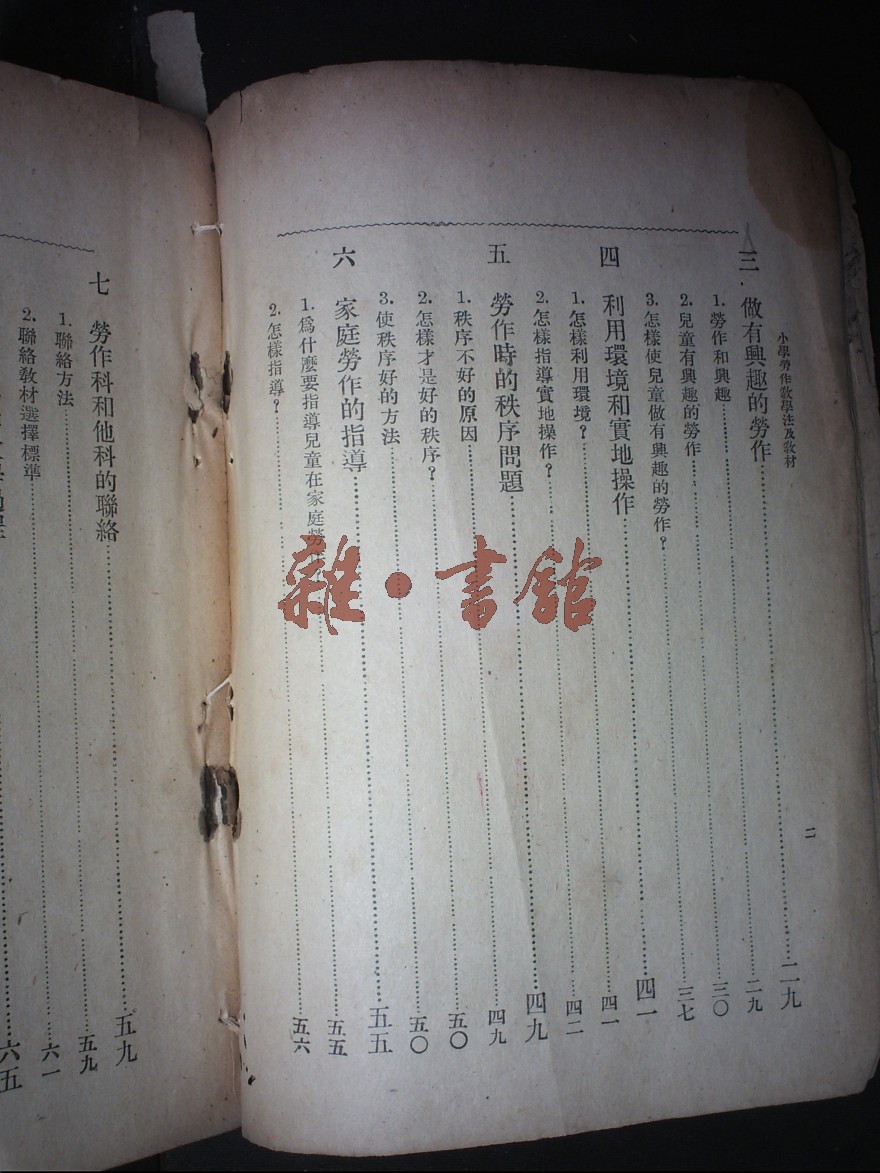 小學勞作教學法及教材
二
三 做有興趣的勞作……二九
1. 勞作和興趣……二九
2. 兒童有興趣的勞作……三〇
3. 怎樣使兒童做有興趣的勞作？……三七
四 利用環境和實地操作……四一
1. 怎樣利用環境？……四一
2. 怎樣指導實地操作？……四二
五 勞作時的秩序問題……四九
1. 秩序不好的原因……四九
2. 怎樣才是好的秩序？……五〇
3. 使秩序好的方法……五〇
六 家庭勞作的指導……五五
1. 爲什麼要指導兒童在家庭勞……五五
2. 怎樣指導？……五六
七 勞作科和他科的聯絡……五九
1. 聯絡方法……五九
2. 聯絡教材選擇標準……六一
六五
雜·書館